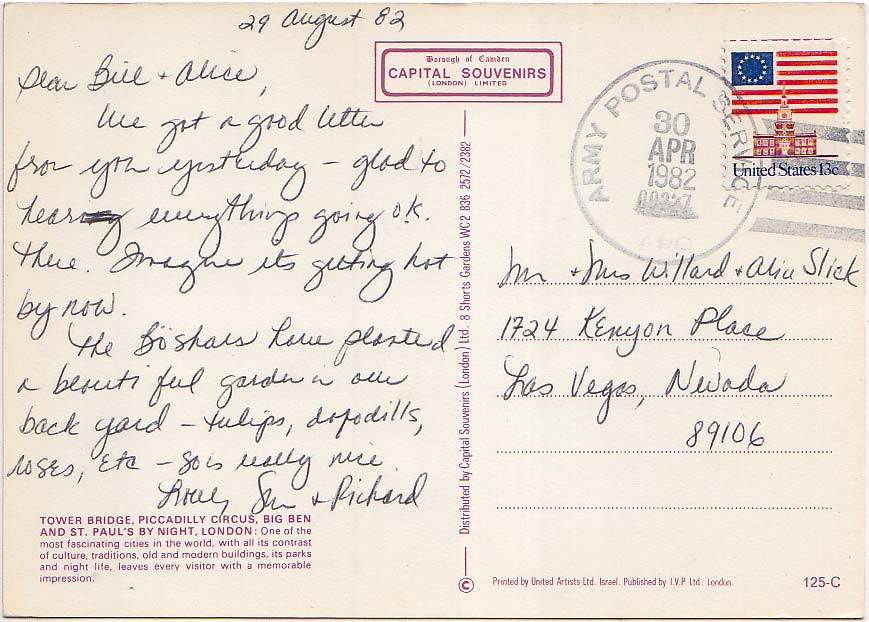 29 August 82
Dear Bill + Alice,
We got a good letter
from you yesterday - glad to
hear everythings going o.k.
there. Imagine its getting hot
by now.
The Böshars have planted
a beautiful garden in our
back yard - tulips, dafodills,
roses, etc - so is really nice
Love, + Richard
TOWER BRIDGE, PICCADILLY CIRCUS, BIG BEN
AND ST. PAUL'S BY NIGHT, LONDON: One of the
most fascinating cities in the world, with all its contrast
of culture, traditions, old and modern buildings, its parks
and night life, leaves every visitor with a memorable
impression.
Borough of Camden
CAPITAL SOUVENIRS
(LONDON) LIMITED
Distributed by Capital Souvenirs (London) Ltd. 8 Shorts Gardens WC2 836 2572/2382
©
ARMY POSTAL SERVICE
30
APR
1982
APO
United States 13c
Mr + Mrs Willard + Alice Slick
1724 Kenyon Place
Las Vegas, Nevada
89106
Printed by United Artists Ltd. Israel. Published by I.V.P Ltd. London.
125-C